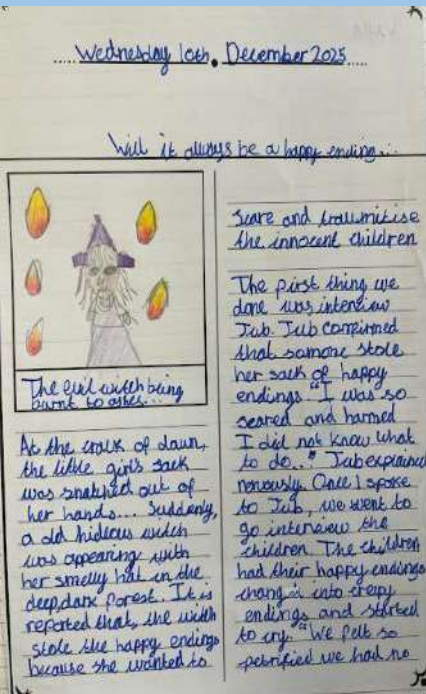 Wednesday 10th. December 2025
Will it always be a happy ending...
The evil witch being
burnt to ashes...
At the crack of dawn,
the little girls sack
was snatched out of
her hands... Suddenly,
a old hideous witch
was appearing with
her smelly hat in the
deep,dark forest. It is
reported that, the witch
stole the happy endings
because she wanted to
scare and traumitise
the innocent children
The first thing we
done was interview
Jub. Jub comfirmed
that somone stole
her sack of happy
endings. "I was so
scared and harmed
I did not know what
to do.." Jub explained
nervously. Once I spoke
to Jub, we went to
go interview the
children. The children
had their happy endings
changed into creepy
endings and started
to cry. "We felt so
petrified we had no